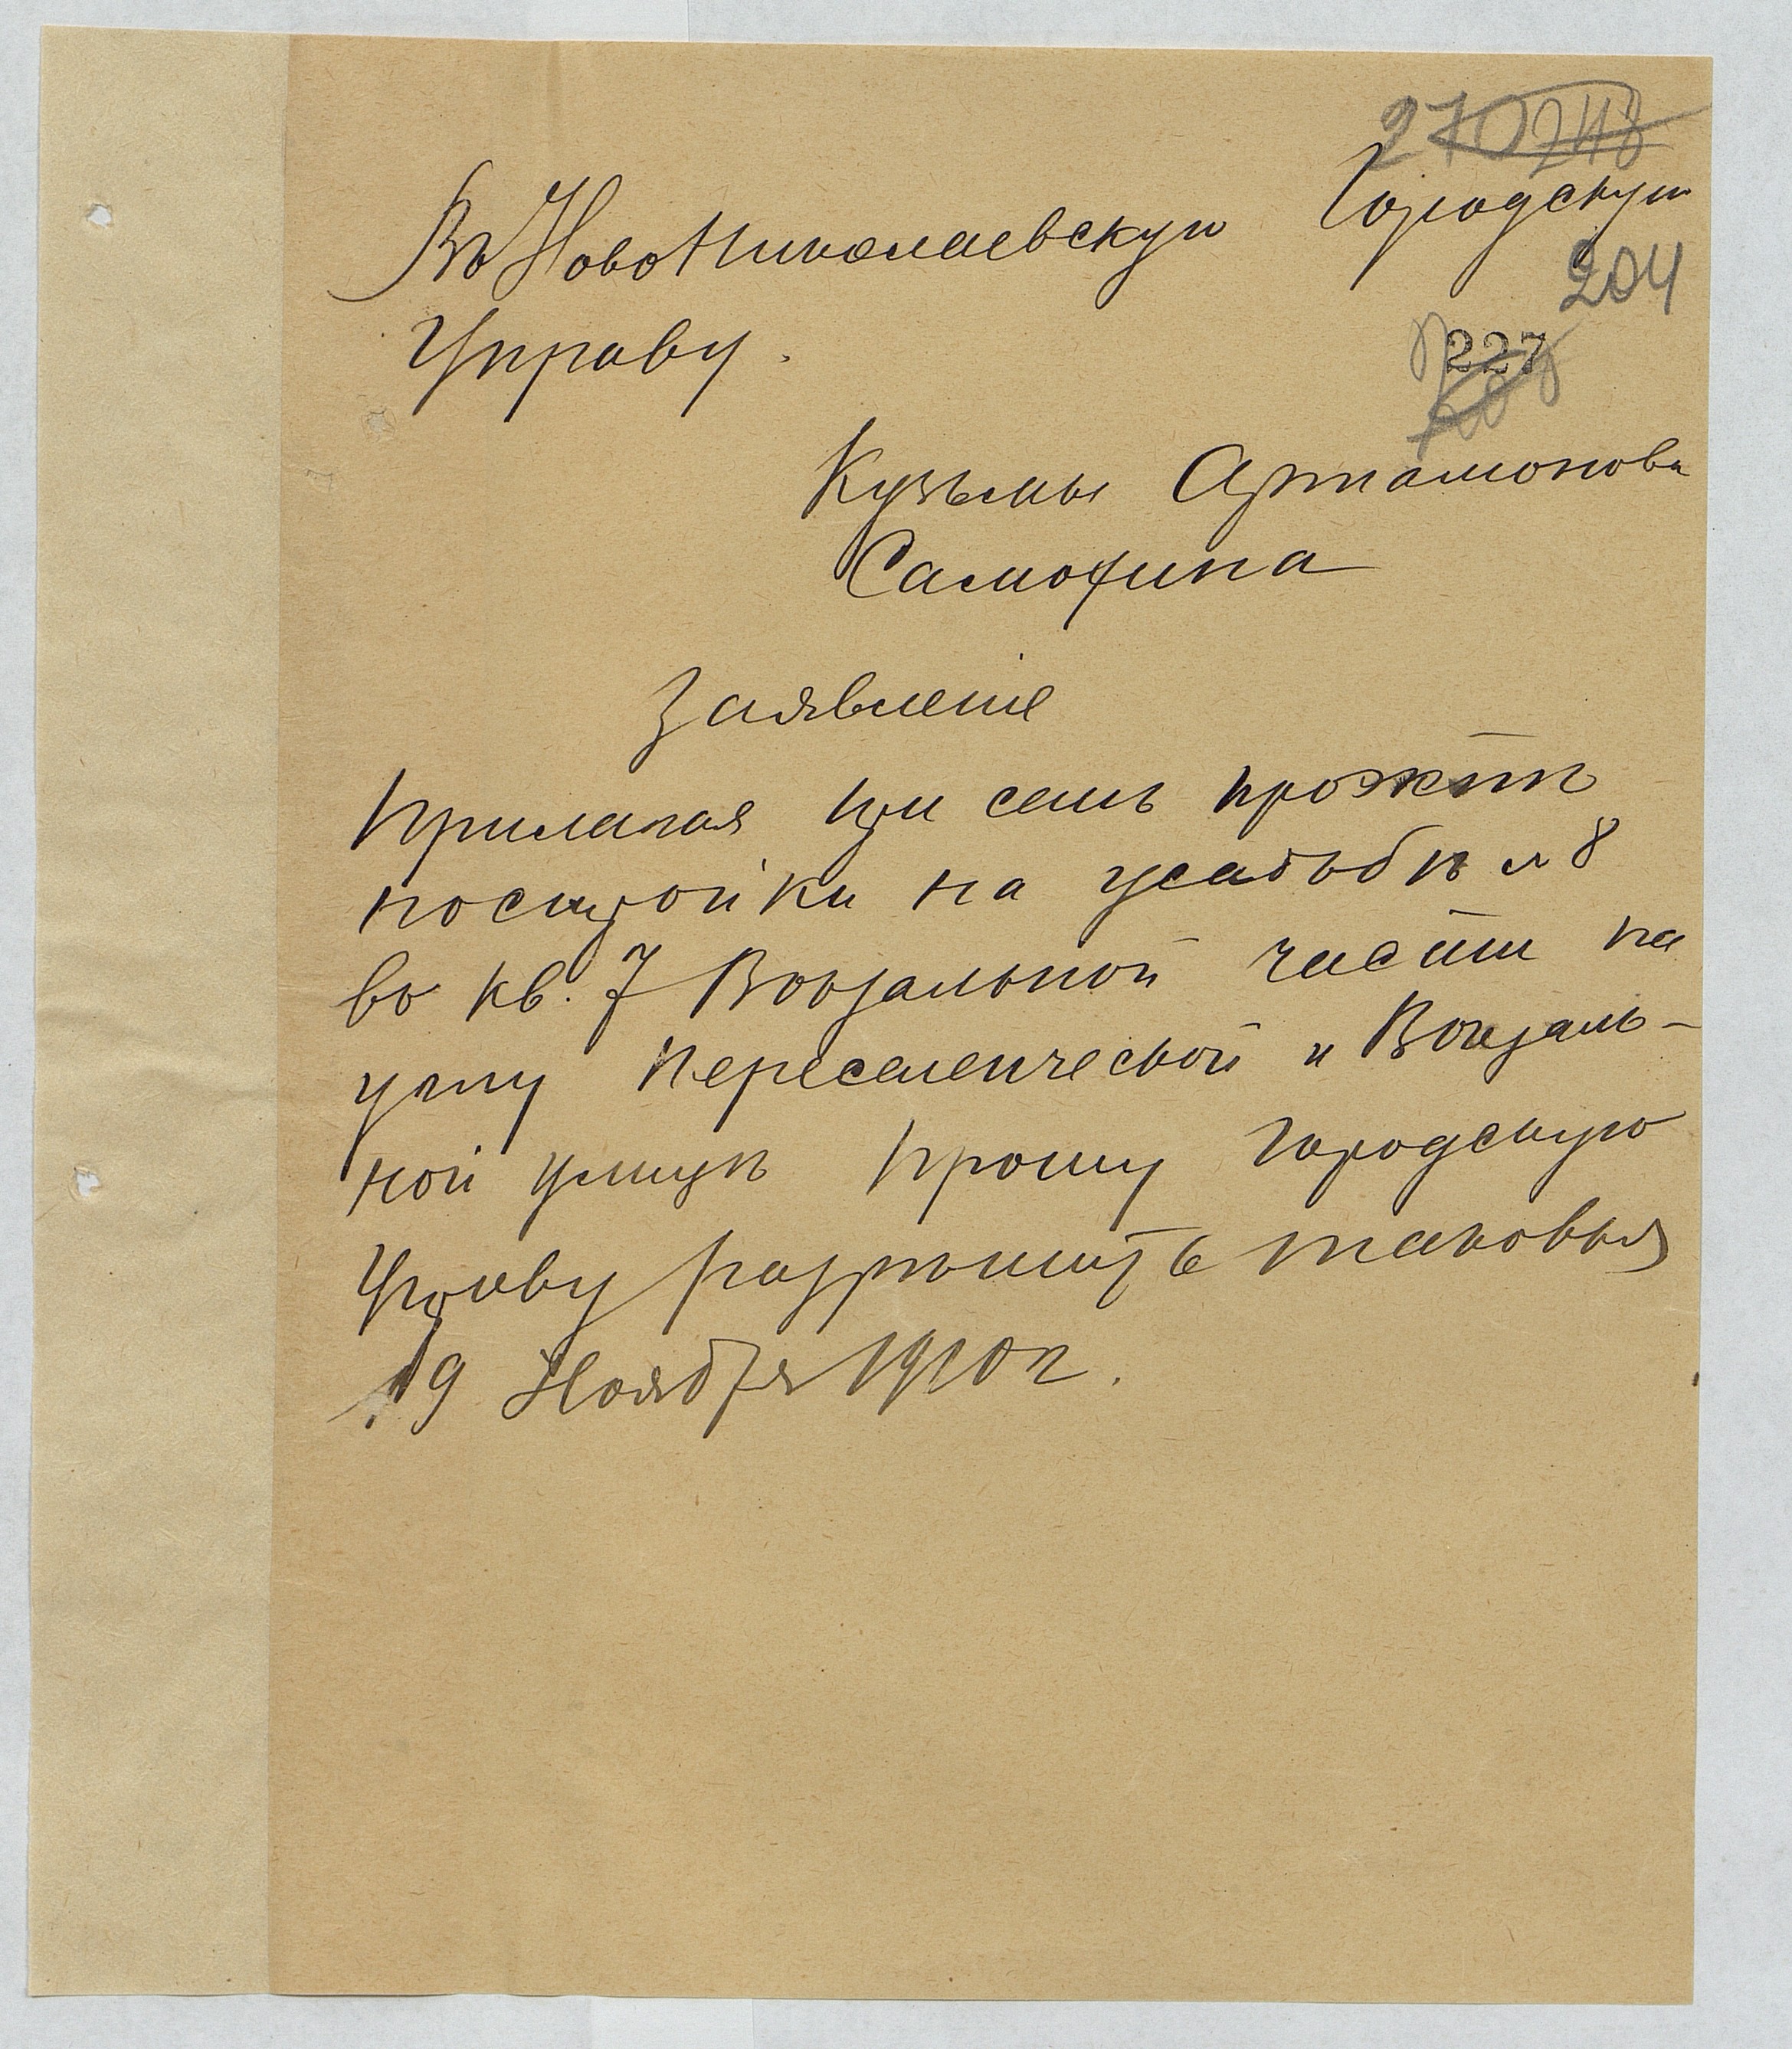 270
Въ НовоНиколаевскую Городскую
204
Управу.
227
Кузьмы Артамонова
Самохина
Заявление
Прилагая при семъ проэктъ
постройки на усадьбѣ № 8
во кв. 7 Вокзальной части на
углу Переселенческой и Вокзаль-
ной улицъ прошу Городскую
Управу разрѣшить таковыя
19 Ноября 1910 г.